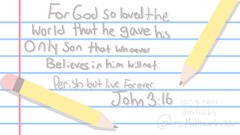 For God so loved the
World that he gave his
Only Son that Whoever
Believes in him will not
Perish but live Forever
John 3:16